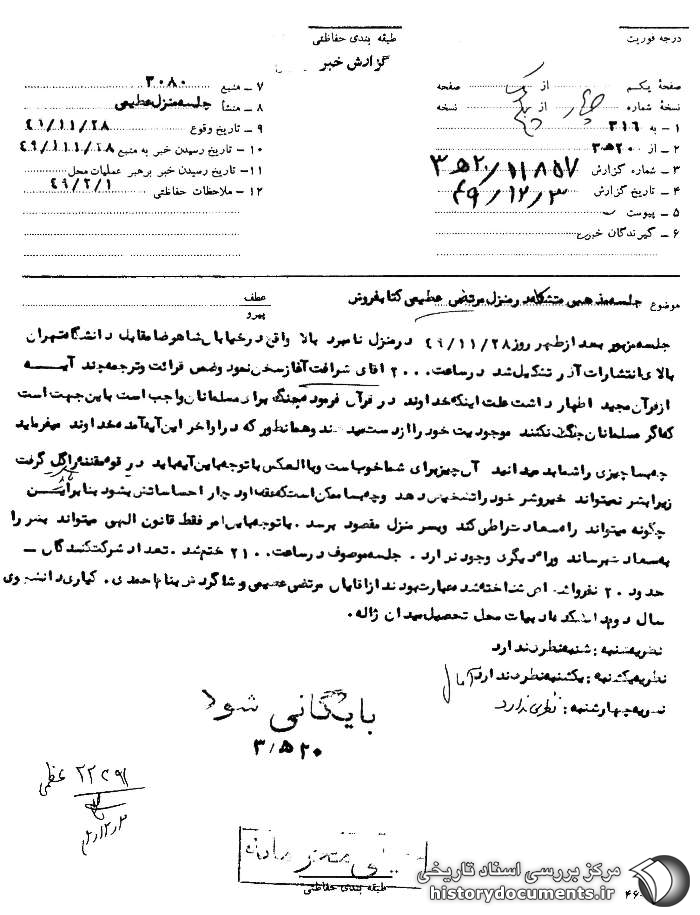 درجه فوریت
طبقه بندی حفاظتی
گزارش خبر
صفحهٔ یکم از صفحه
نسخهٔ شماره چهار از نسخه
۱ ــ به ۳۱۶
۲ ــ از ۳ه۲۰
۳ ــ شماره گزارش ۳ه۲۰/۱۱۸۵۷
۴ ــ تاریخ گزارش ۴۹/۱۲/۳
۵ ــ پیوست
۶ ــ گیرندگان خبر
۷ ــ منبع ۳۰۸۰
۸ ــ منشأ جلسه منزل عظیمی
۹ ــ تاریخ وقوع ۴۹/۱۱/۲۸
۱۰ ــ تاریخ رسیدن خبر به منبع ۴۹/۱۱/۲۸
۱۱ ــ تاریخ رسیدن خبر برهبر عملیات محل
۱۲ ــ ملاحظات حفاظتی ۴۹/۲/۱
موضوع جلسه مذهبی متشکله در منزل مرتضی عظیمی کتابفروش
عطف
پیرو
جلسه مزبور بعد از ظهر روز ۴۹/۱۱/۲۸ در منزل نامبرده بالا واقع در خیابان شاهرضا مقابل دانشگاه تهران
بالای انتشارات آذر تشکیل شد در ساعت ۲۰۰۰ اقای شرافت آغاز سخن نمود و ضمن قرائت و ترجمه چند آیه
از قرآن مجید اظهار داشت علت اینکه خداوند در قرآن فرموده جنگ برای مسلمانان واجب است باین جهت است
که اگر مسلمانان جنگ نکنند موجودیت خود را از دست میدهند و همانطور که در اواخر این آیه آمده خداوند میفرماید
چه بسا چیزی را شما بد میدانید آن چیز برای شما خوب است و بالعکس با توجه باین آیه باید در قوه مقننه را گل گرفت
زیرا بشر نمیتواند خیر و شر خود را تشخیص دهد و چه بسا ممکن است که عقل او دچار احساساتش بشود بنابراین
چگونه میتواند راه سعادت را طی کند و بسر منزل مقصود برسد . با توجه باین امر فقط قانون الهی میتواند بشر را
به سعادت برساند و راه دیگری وجود ندارد . جلسه موصوف در ساعت ۲۱۰۰ ختم شد . تعداد شرکت کنندگان ــ
حدود ۲۰ نفر و اشخاص شناخته شده عبارت بودند از اقایان مرتضی عظیمی و شاگردش بنام احمدی . کیاری دانشجوی
سال دوم دانشکده ادبیات محل تحصیل میدان ژاله .
نظریه شنبه : شنبه نظری ندارد
نظریه یکشنبه : یکشنبه نظری ندارد آمال
نظریه چهارشنبه : نظری ندارد
بایگانی شود
۳/ه۲۰
عظیمی
طبقه بندی حفاظتی
۴۶
مرکز بررسی اسناد تاریخی
historydocuments.ir